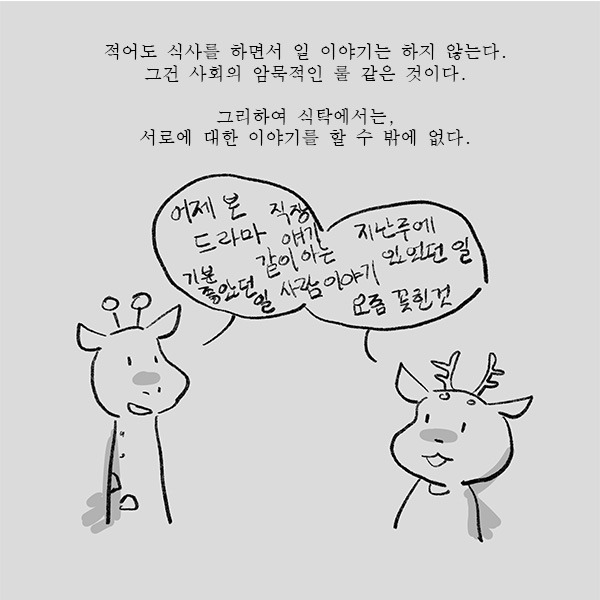 적어도 식사를 하면서 일 이야기는 하지 않는다.
그건 사회의 암묵적인 룰 같은 것이다.
그리하여 식탁에서는,
서로에 대한 이야기를 할 수 밖에 없다.
어제 본
드라마
직장
얘기
같이 아는
사람 이야기
기분
좋았던
일
지난주에
있었던 일
요즘 꽂힌것